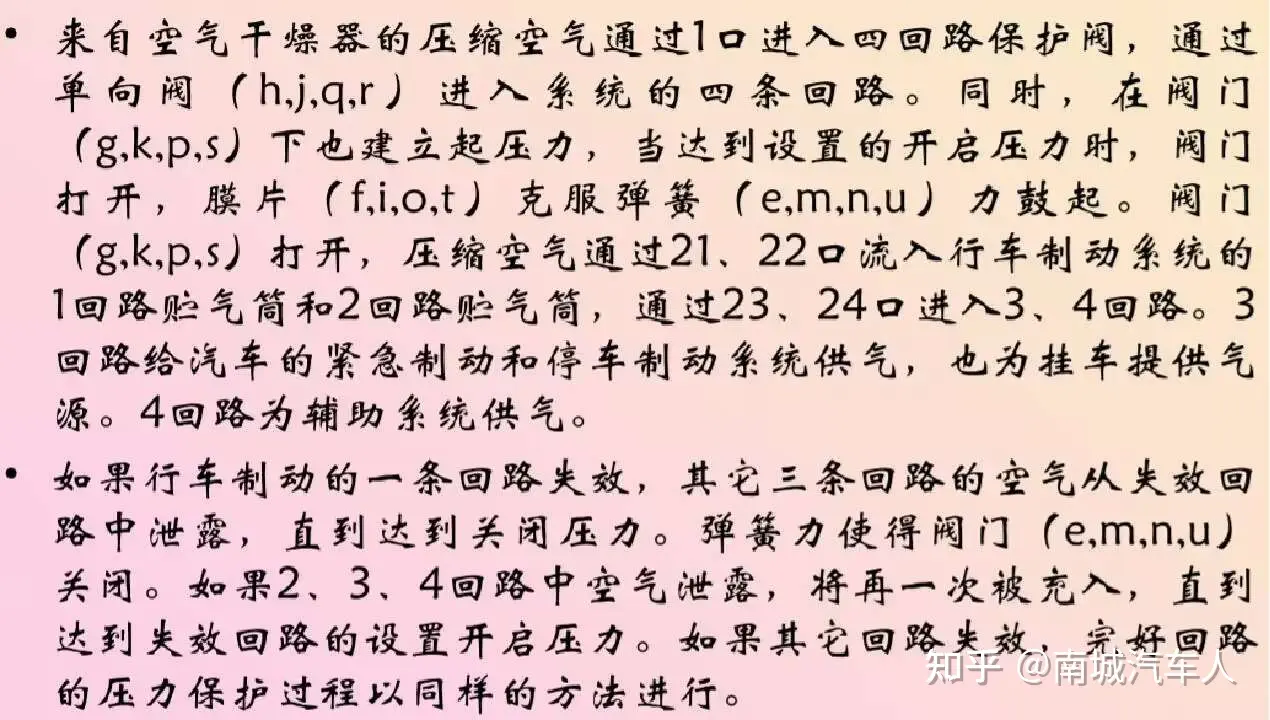 • 来自空气干燥器的压缩空气通过1口进入四回路保护阀，通过
单向阀（h,j,q,r）进入系统的四条回路。同时，在阀门
（g,k,p,s）下也建立起压力，当达到设置的开启压力时，阀门
打开，膜片（f,i,o,t）克服弹簧（e,m,n,u）力鼓起。阀门
（g,k,p,s）打开，压缩空气通过21、22口流入行车制动系统的
1回路贮气筒和2回路贮气筒，通过23、24口进入3、4回路。3
回路给汽车的紧急制动和停车制动系统供气，也为挂车提供气
源。4回路为辅助系统供气。
• 如果行车制动的一条回路失效，其它三条回路的空气从失效回
路中泄露，直到达到关闭压力。弹簧力使得阀门（e,m,n,u）
关闭。如果2、3、4回路中空气泄露，将再一次被充入，直到
达到失效回路的设置开启压力。如果其它回路失效，完好回路
的压力保护过程以同样的方法进行。
知乎 @南城汽车人